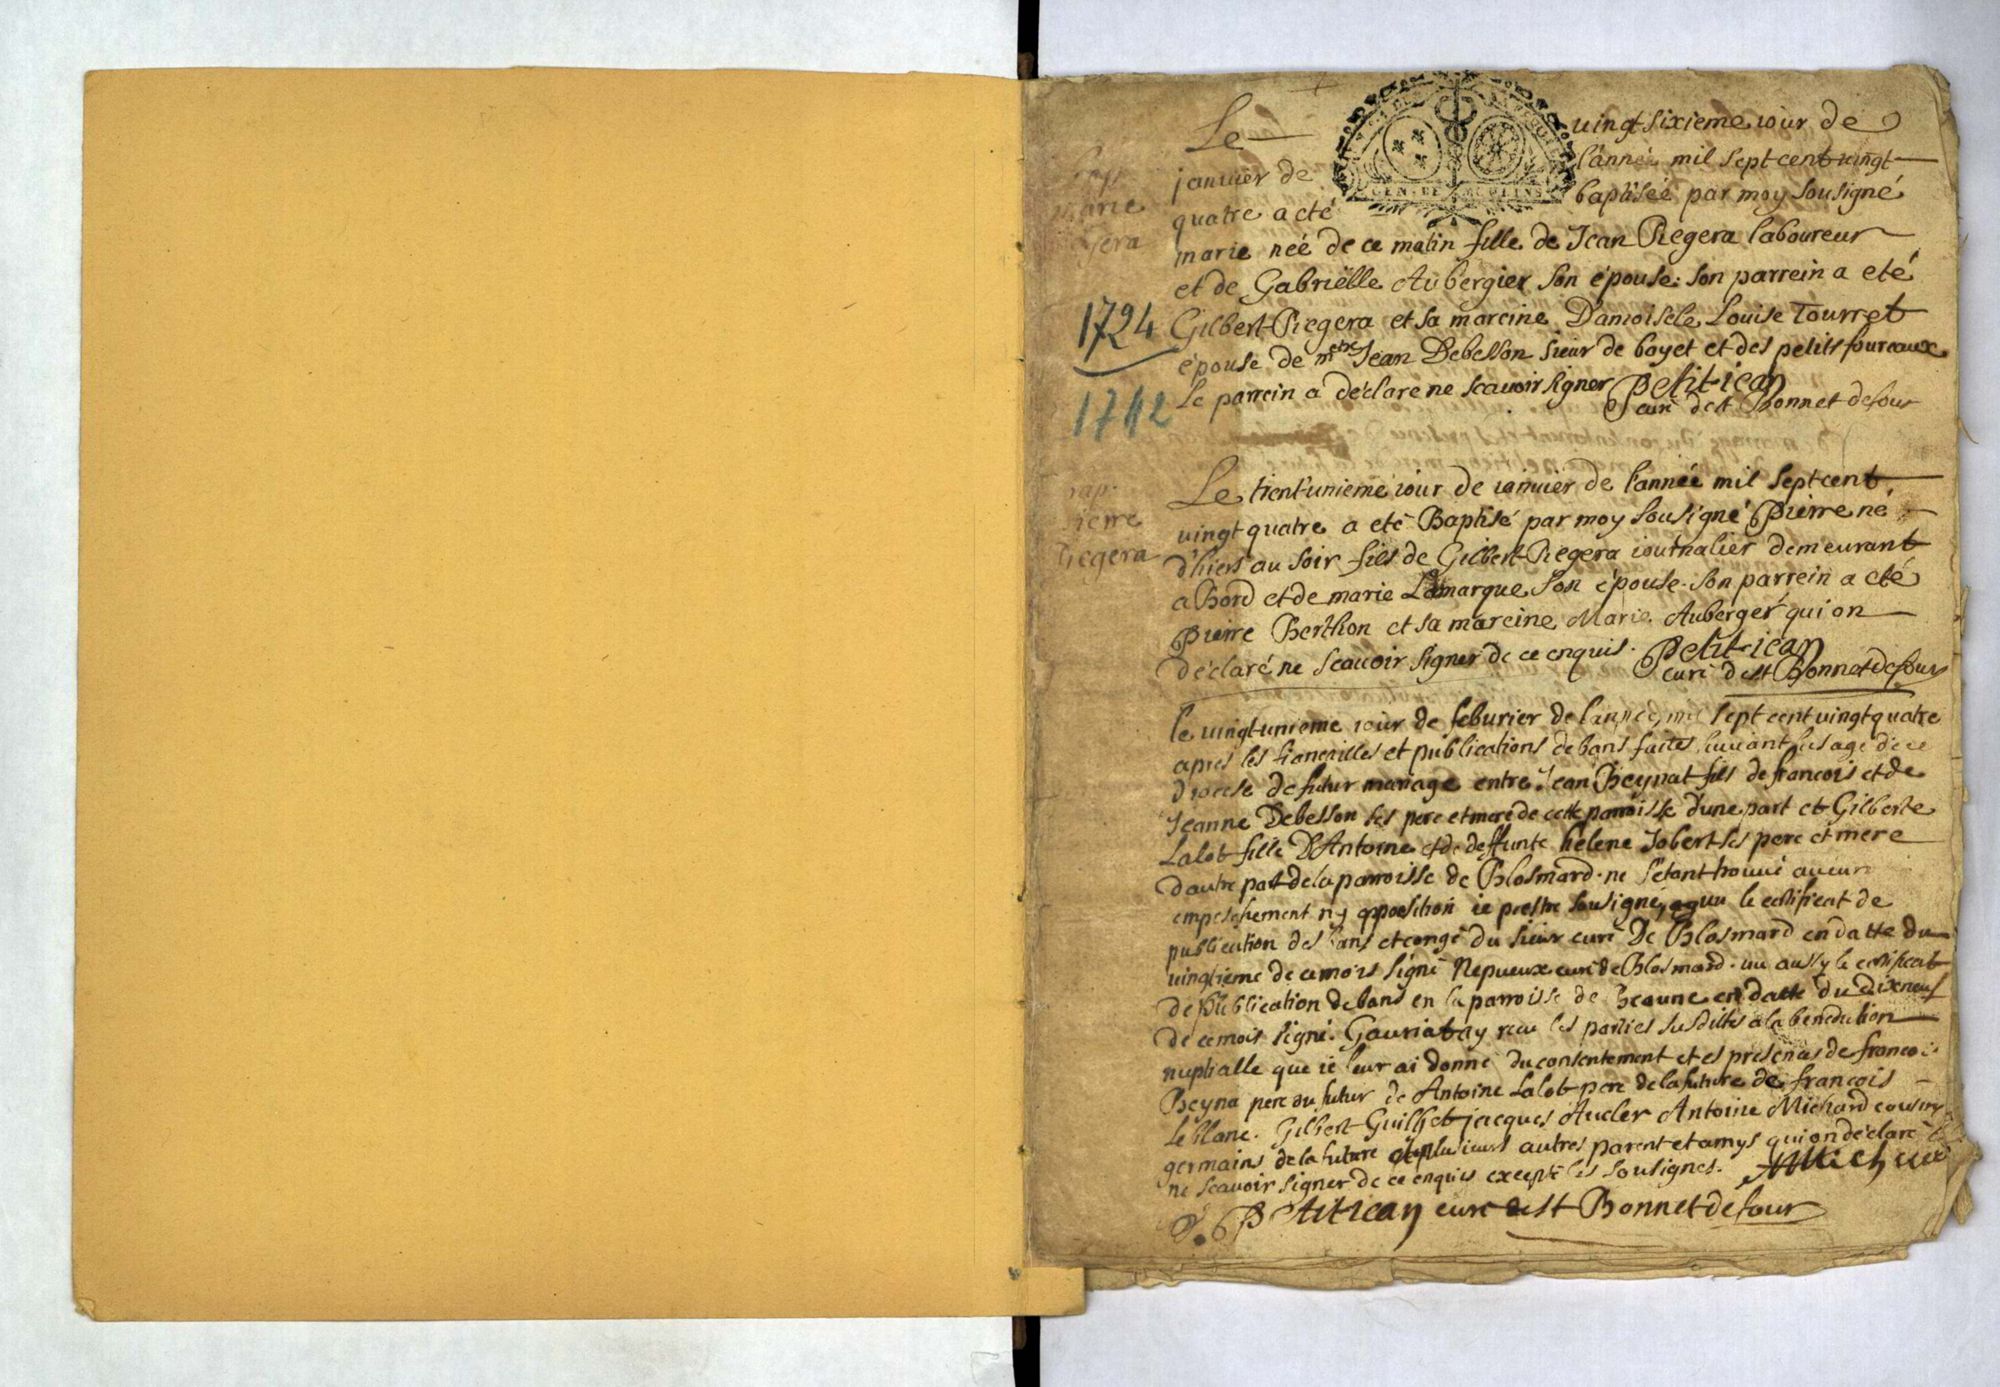 Le vingt sixieme iour de
januier de l'année mil sept cent vingt
quatre a eté baptisée par moy sousigné
GEN. DE MOULINS
marie neé de ce matin fille de Jean Piegera laboureur
et de Gabriëlle Aubergier son épouse. son parrein a eté
Gilbert Piegera et sa mareine Damoisele Louise Tourret
épouse de mtre Jean Debesson sieur de boyet et des petits foureaux
le parrein a déclare ne scauoir signer Petit-iean
curé de st Bonnet de four
marie
gera
1724
1742
Le trent'unieme iour de ianuier de l'année mil sept cent
vingt quatre a eté Baptisé par moy sousigné Pierre né
d'hiers au soir fils de Gilbert Piegera iournalier demeurant
a Bord et de marie Lamarque son épouse. son parrein a eté
Pierre Berthon et sa mareine Marie Auberger qui on
déclaré ne scauoir signer de ce enquis. Petit-iean
curé de st Bonnet de four
bap.
pierre
Piegera
le uingt-unieme iour de feburier de l'année mil sept cent vingt quatre
apres les fiancailles et publications de bans faites suiuant l'usage de ce
diocese de futur mariage entre Jean Beynat fils de francois et de
Jeanne Debesson ses pere et mere de cette parroisse d'une part et Gilberte
Lalot fille D'Antoine et de deffunte helene Jobert ses pere et mere
d'autre part de la parroisse de Blosmard. ne s'étant trouué aucun
empeschement ny opposition ie prestre sousigné, ay uu le certificat de
publication des bans et congé du sieur curé De Blosmard en datte du
uingtieme de ce mois signé Nepueux curé de Blosmard. uu aussy le certificat
de publication de bans en la parroisse de Beaune en datte du dixneuf
de ce mois signé. Gauriat ay receu les parties susdittes a la benediction
nuptialle que ie leur ai donné du consentement et es presences de francois
Beyna pere du futur de Antoine Lalot pere de la future de francois
le blanc. Gilbert Guilhet jacques Aucler Antoine Michard cousins
germains de la future et plusieurs autres parent et amys qui on déclaré
ne scauoir signer de ce enquis excepté les sousignes.
Petit iean curé de st Bonnet de four